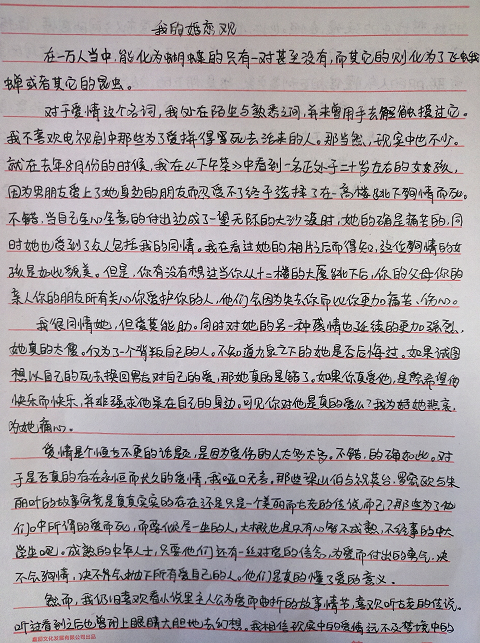 我的婚恋观
在一万人当中,能化为蝴蝶的只有一对甚至没有,而其它的则化为了飞蛾或
蝉或者其它的昆虫。
对于爱情这个名词,我处在陌生与熟悉之间,并未曾用手去解触摸过它。
我不喜欢电视剧中那些为了爱拼得冒死去活来的人。那当然,现实中也不少。
就在去年8月份的时候,我在《下午茶》中看到一名正处于二十岁左右的女孩,
因为男朋友爱上了她身边的朋友而忍受不了终于选择了在一高楼跳下殉情而死。
不错,当自己全心全意的付出边成了一望无际的大沙漠时,她的确是痛苦的,同
时她也受到了众人包括我的同情。我在看过她的相片后而得知,这位殉情的女
孩是如此貌美。但是,你有没有想过当你从十二楼的大厦跳下后,你的父母你的
亲人你的朋友所有关心你爱护你的人,他们会因为失去你而比你更加痛苦、伤心。
我很同情她,但爱莫能助。同时对她的另一种感情也延续的更加强烈,
她真的太傻。仅为了一个背叛自己的人。不知道九泉之下的她是否后悔过。如果试图
想以自己的死去换回男友对自己的爱,那她真的是错了。如果你真爱他,是会希望他
快乐而快乐,并非强求他呆在自己的身边。可见你对他是真的爱么?我为好她悲哀,
为她痛心。
爱情是个恒古不更的话题,是因为受伤的人太多太多。不错,的确如此。对
于是否真的存在永恒而长久的爱情,我哑口无言。那些梁山伯与祝英台、罗密欧与朱
丽叶的故事究竟是真真实实的存在还是只是一个美丽而古老的传说而已?那些为了他
们口中所谓的爱而死,而要似尽一生的人,大概也是只有心智不成熟,不经事的中大
学生吧。成熟的中年人士,只要他们还有一丝对爱的信念,为爱而付出的勇气,决
不会殉情,决不会抛下所有爱自己的人。他们是真的懂了爱的意义。
然而,我仍旧喜欢看小说里主人公为爱而曲折的故事情节,喜欢听古老的传说。
听过看到之后也曾闭上眼睛大胆地去幻想。我相信现实中的爱情远不及梦境中的
鑫颜文化发展有限公司出品